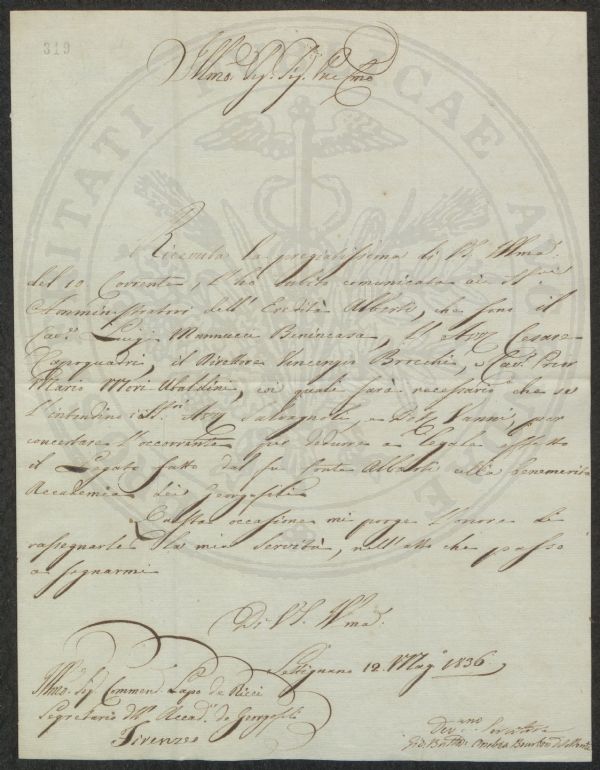 319
Illmo. Sig. Sig. Pne Cmo
Ricevuta la pregiatissima di V. S. Illma.
del 10 Corrente, l'ho subito comunicata ai SS.ri
Amministratori dell'Eredità Alberti, che sono il
Cav.e Luigi Mannucci Benincasa, l'Avv. Cesare
il Direttore Vincenzo Brocchi, e Cav. Prior
Mario Mori Ubaldini, coi quali sarà necessario che se
l'intendino i SS.ri Avv. Salvagnoli e Del Vanni, per
concertare l'occorrente per ridurre a legale effetto
il Legato fatto dal fu Conte Alberti alla benemerita
Accademia dei Georgofili
Questa occasione mi porge l'onore di
rassegnarle la mia servitù, nell'atto che passo
a segnarmi
Di V. S. Illma.
Settignano 12. Magº 1836.
Illmo. Sig. Commend. Lapo de Ricci
Segretario dell' Accad.a de Georgofili
Firenze
Dev.mo Servitore
Gio. Batta. Bourbon del Monte